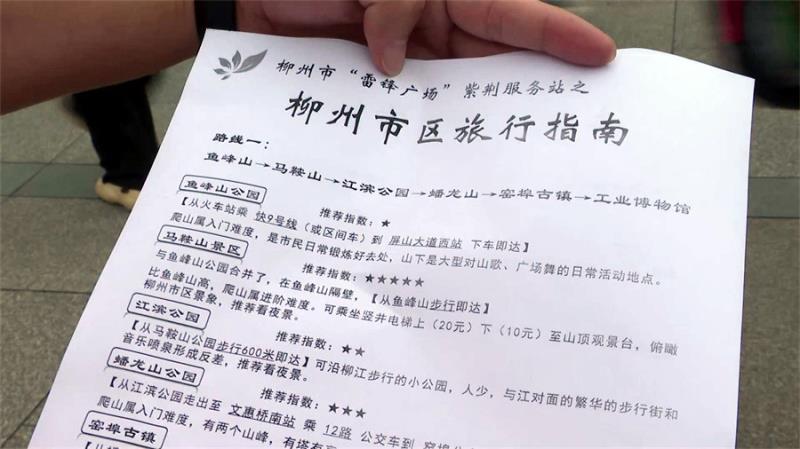 柳州市“雷锋广场”紫荆服务站之
柳州市区旅行指南
路线一：
鱼峰山→马鞍山→江滨公园→蟠龙山→窑埠古镇→工业博物馆
鱼峰山公园 推荐指数：★
【从火车站乘 快9号线（或区间车）到 屏山大道西站 下车即达】
爬山属入门难度，是市民日常锻炼好去处，山下是大型对山歌、广场舞的日常活动地点。
马鞍山景区 推荐指数：★★★★★
与鱼峰山公园合并了，在鱼峰山隔壁，【从鱼峰山步行即达】
比鱼峰山高，爬山属进阶难度。可乘坐竖井电梯上（20元）下（10元）至山顶观景台，俯瞰
柳州市区景象，推荐看夜景。
江滨公园 推荐指数：★★
【从马鞍山公园步行600米即达】可沿柳江步行的小公园，人少，与江对面的繁华的步行街和
音乐喷泉形成反差，推荐看夜景。
蟠龙山公园 推荐指数：★★
【从江滨公园走出至 文惠桥南站 乘 12路 公交车到 窑埠
爬山属入门难度，有两个山峰，有塔有
窑埠古镇